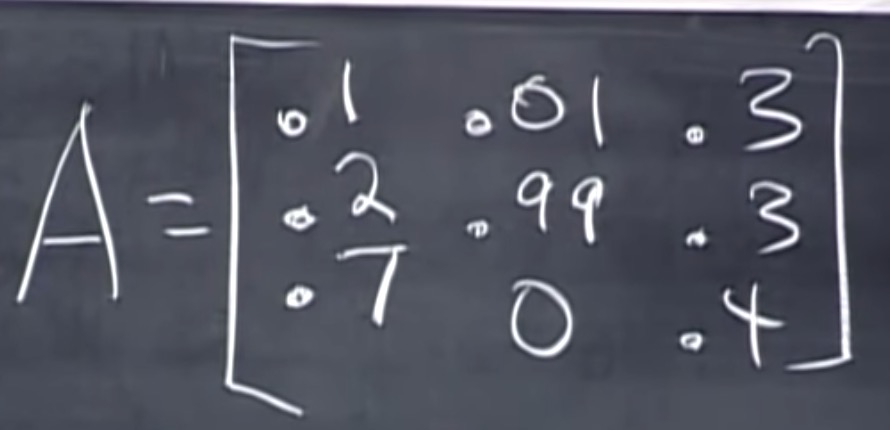 A = [ .1 .01 .3
.2 .99 .3
.7 0 .4 ]